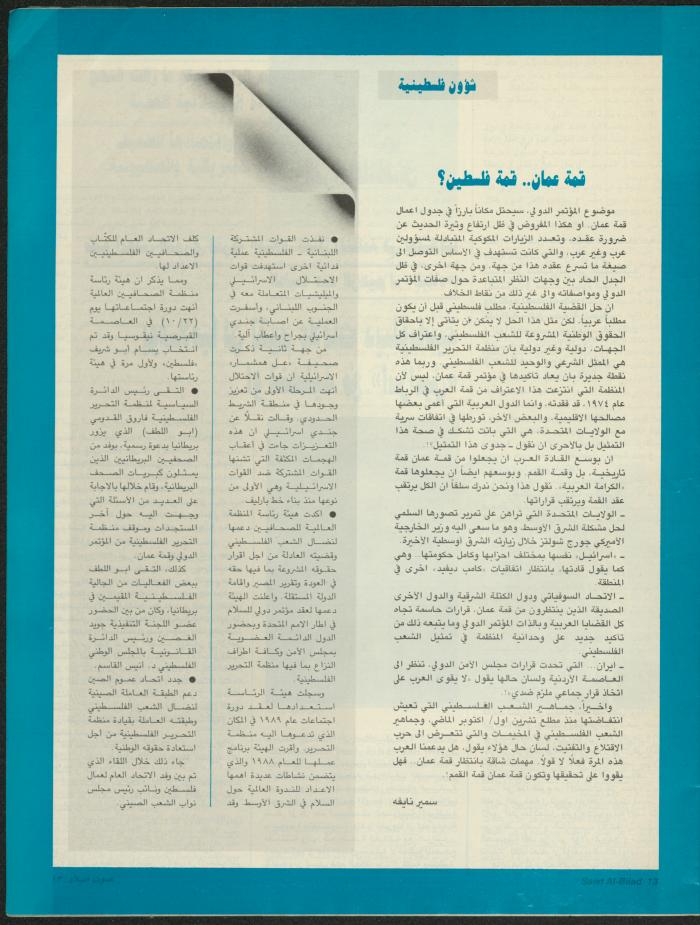 شؤون فلسطينية
قمة عمان.. قمة فلسطين؟
موضوع المؤتمر الدولي، سيحتل مكاناً بارزاً في جدول اعمال
قمة عمان. او هكذا المفروض في ظل ارتفاع وتيرة الحديث عن
ضرورة عقده، وتعدد الزيارات المكوكية المتبادلة لمسؤولين
عرب وغير عرب، والتي كانت تستهدف في الأساس التوصل الى
صيغة ما تسرع عقده هذا من جهة، ومن جهة اخرى، في ظل
الجدل الحاد بين وجهات النظر المتباعدة حول صفات المؤتمر
الدولي ومواصفاته والى غير ذلك من نقاط الخلاف.
ان حل القضية الفلسطينية، مطلب فلسطيني قبل ان يكون
مطلباً عربياً. لكن مثل هذا الحل لا يمكن ان يتاتى إلا بإحقاق
الحقوق الوطنية المشروعة للشعب الفلسطيني، واعتراف كل
الجهات، دولية وغير دولية بان منظمة التحرير الفلسطينية
هي الممثل الشرعي والوحيد للشعب الفلسطيني. وربما هذه
نقطة جديرة بان يعاد تاكيدها في مؤتمر قمة عمان، ليس لأن
المنظمة التي انتزعت هذا الاعتراف من قمة العرب في الرباط
عام ١٩٧٤، قد فقدته، وانما الدول العربية التي أعمى بعضها
مصالحها الاقليمية، والبعض الآخر، تورطها في اتفاقات سرية
مع الولايات المتحدة، هي التي باتت تشكك في صحة هذا
التمثيل بل بالاحرى ان نقول ـ جدوى هذا التمثيل؟!.
ان بوسع القادة العرب ان يجعلوا من قمة عمان قمة
تاريخية، بل وقمة القمم. وبوسعهم ايضاً ان يجعلوها قمة
«الكرامة العربية». نقول هذا ونحن ندرك سلفاً ان الكل يرتقب
عقد القمة ويرتقب قراراتها.
ـ الولايات المتحدة التي تراهن على تمرير تصورها السلمي
لحل مشكلة الشرق الأوسط، وهو ما سعى اليه وزير الخارجية
الأميركي جورج شولتز خلال زيارته الشرق اوسطية الأخيرة.
ـ «اسرائيل» نفسها بمختلف احزابها وكامل حكومتها.. وهي
كما يقول قادتها، بانتظار اتفاقيات «كامب ديفيد» اخرى في
المنطقة.
ـ الاتحاد السوفياتي ودول الكتلة الشرقية والدول الأخرى
الصديقة الذين ينتظرون من قمة عمان، قرارات حاسمة تجاه
كل القضايا العربية وبالذات المؤتمر الدولي وما يتبعه ذلك من
تاكيد جديد على وحدانية المنظمة في تمثيل الشعب
الفلسطيني.
ـ ايران... التي تحدت قرارات مجلس الأمن الدولي، تنظر الى
العاصمة الأردنية ولسان حالها يقول «لا يقوى العرب على
اتخاذ قرار جماعي ملزم ضدي»!
واخيراً، جماهير الشعب الفلسطيني التي تعيش
انتفاضتها منذ مطلع تشرين اول/ اكتوبر الماضي، وجماهير
الشعب الفلسطيني في المخيمات والتي تتعرض الى حرب
الاقتلاع والتفتيت، لسان حال هؤلاء يقول، هل يدعمنا العرب
هذه المرة فعلاً لا قولاً.. مهمات شاقة بانتظار قمة عمان.. فهل
يقووا على تحقيقها وتكون قمة عمان قمة القمم؟.
سمير نايفه
● نفذت القوات المشتركة
اللبنانية ـ الفلسطينية عملية
فدائية اخرى استهدفت قوات
الاحتلال الاسرائيلي
والميليشيات المتعاملة معه في
الجنوب اللبناني، واسفرت
العملية عن اصابة جندي
اسرائيلي بجراح واعطاب آلية.
من جهة ثانية ذكرت
صحيفة «عل همشمار»
الاسرائيلية ان قوات الاحتلال
انهت المرحلة الأولى من تعزيز
وجودها في منطقة الشريط
الحدودي، وقالت نقلاً عن
جندي اسرائيلي ان هذه
التعزيزات جاءت في أعقاب
الهجمات المكثفة التي تشنها
القوات المشتركة ضد القوات
الاسرائيلية وهي الأولى من
نوعها منذ بناء خط بارليف.
● اكدت هيئة رئاسة المنظمة
العالمية للصحافيين دعمها
لنضال الشعب الفلسطيني
وقضيته العادلة من اجل اقرار
حقوقه المشروعة بما فيها حقه
في العودة وتقرير المصير واقامة
الدولة المستقلة. واعلنت الهيئة
دعمها لعقد مؤتمر دولي للسلام
في اطار الامم المتحدة وبحضور
الدول الدائمة العضوية
بمجلس الأمن وكافة اطراف
النزاع بما فيها منظمة التحرير
الفلسطينية.
وسجلت هيئة الرئاسة
استعدادها لعقد دورة
اجتماعات عام ١٩٨٩ في المكان
الذي تدعوها اليه منظمة
التحرير. واقرت الهيئة برنامج
عملها للعام ١٩٨٨ والذي
يتضمن نشاطات عديدة اهمها
الاعداد للندوة العالمية حول
السلام في الشرق الأوسط. وقد
كلف الاتحاد العام للكتّاب
والصحافيين الفلسطينيين
الاعداد لها.
ومما يذكر ان هيئة رئاسة
منظمة الصحافيين العالمية
أنهت دورة اجتماعاتها يوم
(١٠/٢٢) في العاصمة
القبرصية نيقوسيا وقد تم
انتخاب بسام ابو شريف
«فلسطين» ولأول مرة في هيئة
رئاستها.
● التقى رئيس الدائرة
السياسية لمنظمة التحرير
الفلسطينية فاروق القدومي
(ابو اللطف) الذي يزور
بريطانيا بدعوة رسمية، بوفد من
الصحفيين البريطانيين الذين
يمثلون كبريات الصحف
البريطانية، وقام خلالها بالاجابة
على العديد من الأسئلة التي
وجهت اليه حول أخر
المستجدات وموقف منظمة
التحرير الفلسطينية من المؤتمر
الدولي وقمة عمان.
كذلك، التقى ابو اللطف
ببعض الفعاليات من الجالية
الفلسطينية المقيمين في
بريطانيا، وكان من بين الحضور
عضو اللجنة التنفيذية جويد
الغصين ورئيس الدائرة
القانونية بالمجلس الوطني
الفلسطيني د. انيس القاسم.
● جدد اتحاد عموم الصين
دعم الطبقة العاملة الصينية
لنضال الشعب الفلسطيني
وطبقته العاملة بقيادة منظمة
التحرير الفلسطينية من أجل
استعادة حقوقه الوطنية.
جاء ذلك خلال اللقاء الذي
تم بين وفد الاتحاد العام لعمال
فلسطين ونائب رئيس مجلس
نواب الشعب الصيني.
صوت البلاد ـ ١٣
Sawt Al-Bilad 13